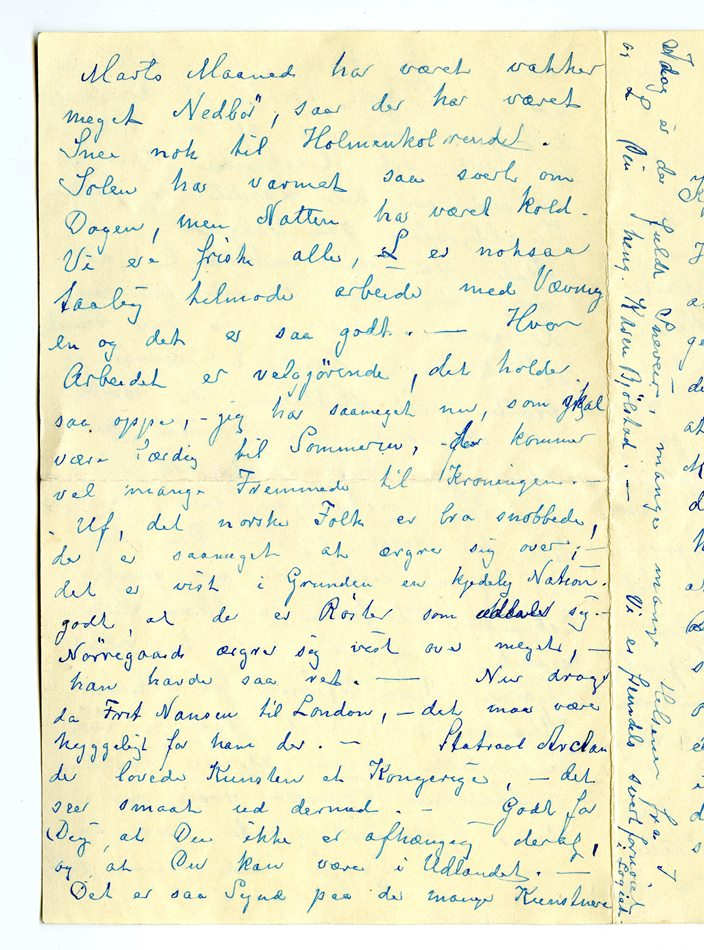 Marts Maaned har været vakker
meget Nedbör, saa der har været
Snee nok til Holmenkolrendet.
Solen har varmet saa svert om
Dagen, men Natten har været kold.
Vi ere friske alle, L er noksaa
taalig tilmode arbeide med Vævning
en og det er saa godt. — Hvor
Arbeidet er velgjörende, det holder
saa oppe, - jeg har saameget nu, som skal
være færdig til Sommeren, der kommer
vel mange Fremmede til Kroningen. —
Uf, det norske Folk er bra snobbede,
der er saameget at ærgre sig over; —
det er vist i Grunden en kjedelig Nation.
godt, at der er Röster som udtaler sig. -
Nörregaard ærgrer sig vist over meget, —
han havde saa ret. — Nu drager
da Frit Nansen til London, — det maa være
hyggeligt for ham der. — Statraad Arctan
der lovede Kunsten et Kongerige, — det
seer smaat ud dermed. — Godt for
Dig, at Du ikke er afhængig deraf,
og at Du kan være i Udlandet. —
Det er saa Synd paa de mange Kunstnere
Idag er der fuldt Sneveir, mange mange Hilsener fra
og L Din heng. Karen Bjölstad. — Vi er fremdeles svert fornöiet
i Logiet.